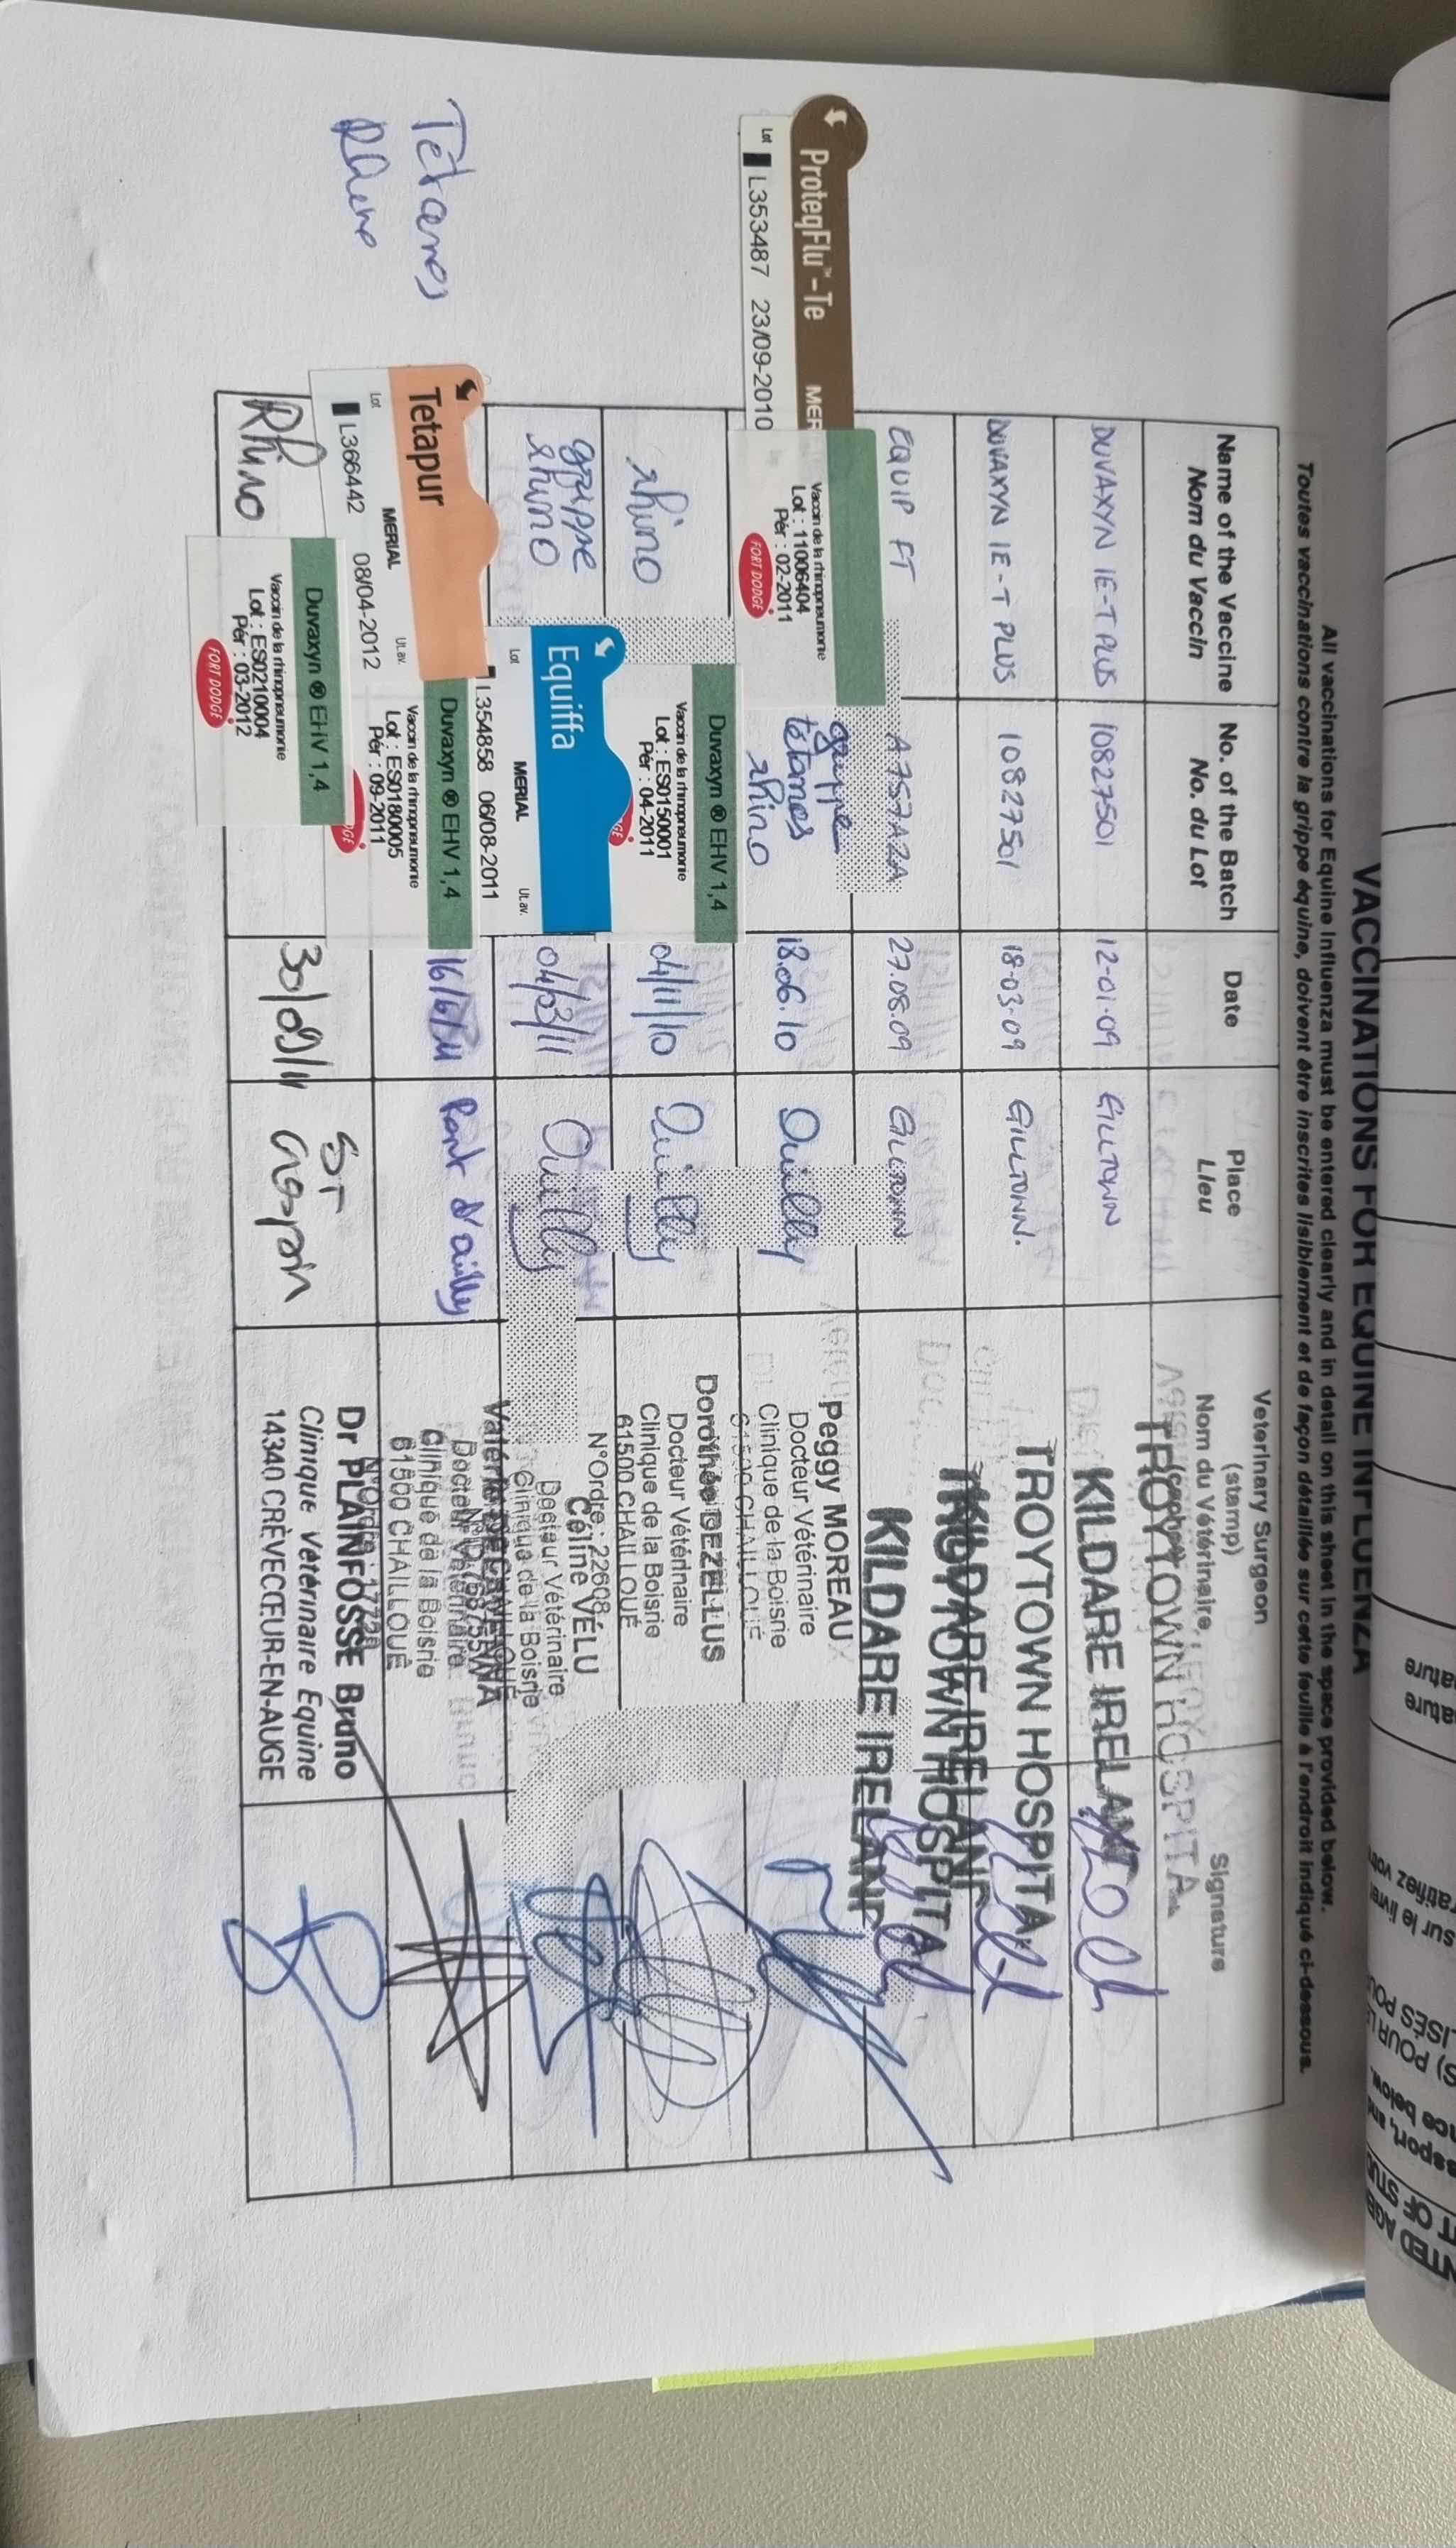 VACCINATIONS FOR EQUINE INFLUENZA
All vaccinations for Equine Influenza must be entered clearly and in detail on this sheet in the space provided below.
Toutes vaccinations contre la grippe équine, doivent être inscrites lisiblement et de façon détaillée sur cette feuille à l'endroit indiqué ci-dessous.
Name of the Vaccine
Nom du Vaccin
No. of the Batch
No. du Lot
Date
Place
Lieu
Veterinary Surgeon
(stamp)
Nom du Vétérinaire
Signature
TROYTOWN HOSPITA
DUVAXYN IE-T PLUS 10827501 12-01-09 GILLTOWN
KILDARE IRELAND
DUVAXYN IE-T PLUS 10827501 18-03-09 GILLTOWN.
TROYTOWN HOSPITA
KILDARE IRELAND
TROYTOWN HOSPITA
EQUIP FT A757A2A 27.08.09 GILLTOWN
KILDARE IRELAND
ProteqFlu™-Te MER
Lot L353487 23/09-2010
Vaccin de la rhinopneumonie
Lot : 11006404
Pér : 02-2011
FORT DODGE
grippe
tétanos
rhino
18.06.10 Ouilly
Peggy MOREAU
Docteur Vétérinaire
Clinique de la Boisrie
61500 CHAILLOUÉ
rhino
Duvaxyn ® EHV 1,4
Vaccin de la rhinopneumonie
Lot : ES0150001
Pér : 04-2011
04/11/10 Ouilly
Dorothée DEZELLUS
Docteur Vétérinaire
Clinique de la Boisrie
61500 CHAILLOUÉ
N°Ordre : 22608
grippe
rhino
Equiffa
MERIAL
Ut.av.
Lot L354858 06/08-2011
04/03/11 Ouilly
Céline VÉLU
Docteur Vétérinaire
Clinique de la Boisrie
Tétanos
Rhino
Tetapur
MERIAL
Ut.av.
Lot L366442 08/04-2012
Duvaxyn ® EHV 1,4
Vaccin de la rhinopneumonie
Lot : ES0180005
Pér : 09-2011
16/6/11 Pont d'ouilly
Docteur Vétérinaire
Clinique de la Boisrie
61500 CHAILLOUÉ
Rhino
Duvaxyn ® EHV 1,4
Vaccin de la rhinopneumonie
Lot : ES0210004
Pér : 03-2012
FORT DODGE
30/09/11
Dr PLAINFOSSE Bruno
Clinique Vétérinaire Equine
14340 CRÈVECŒUR-EN-AUGE